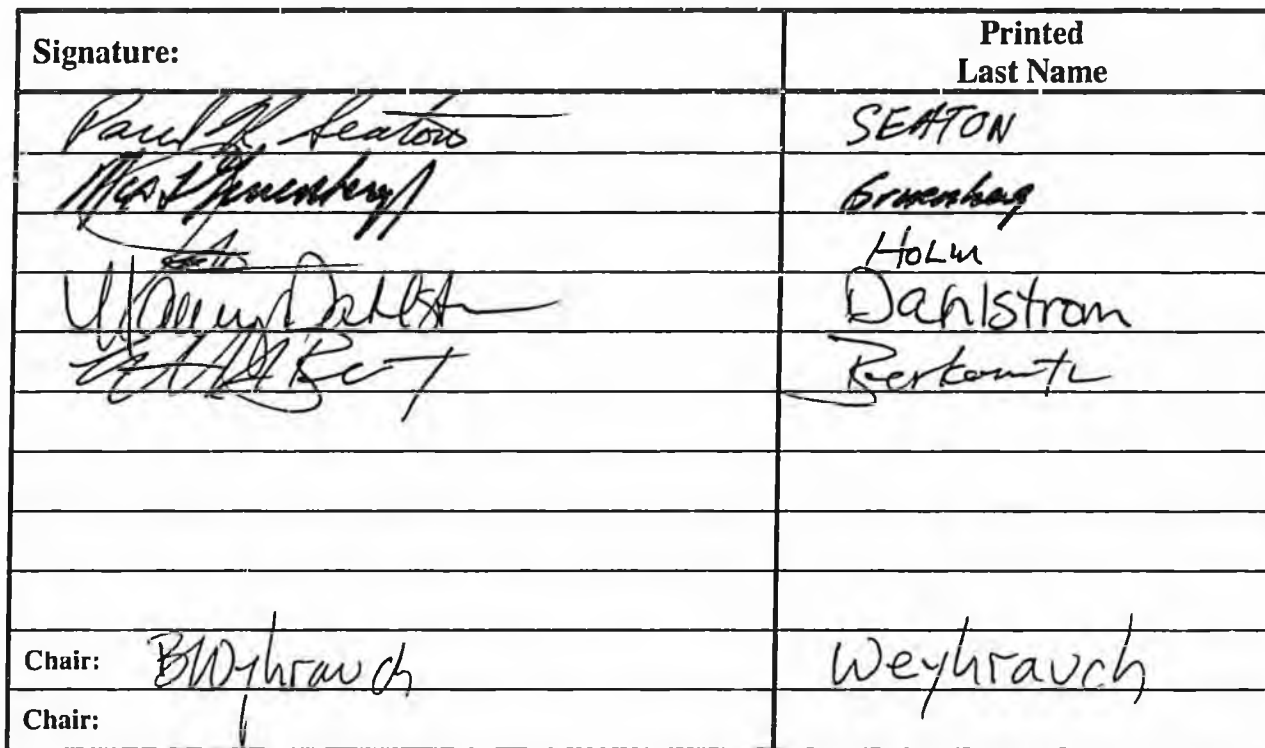 Signature: Printed Last Name
Paul K. Seaton SEATON
Gruenberg
HoLm
Dahlstrom
Berkowitz
Chair: BWyhrauch Weyhrauch
Chair: